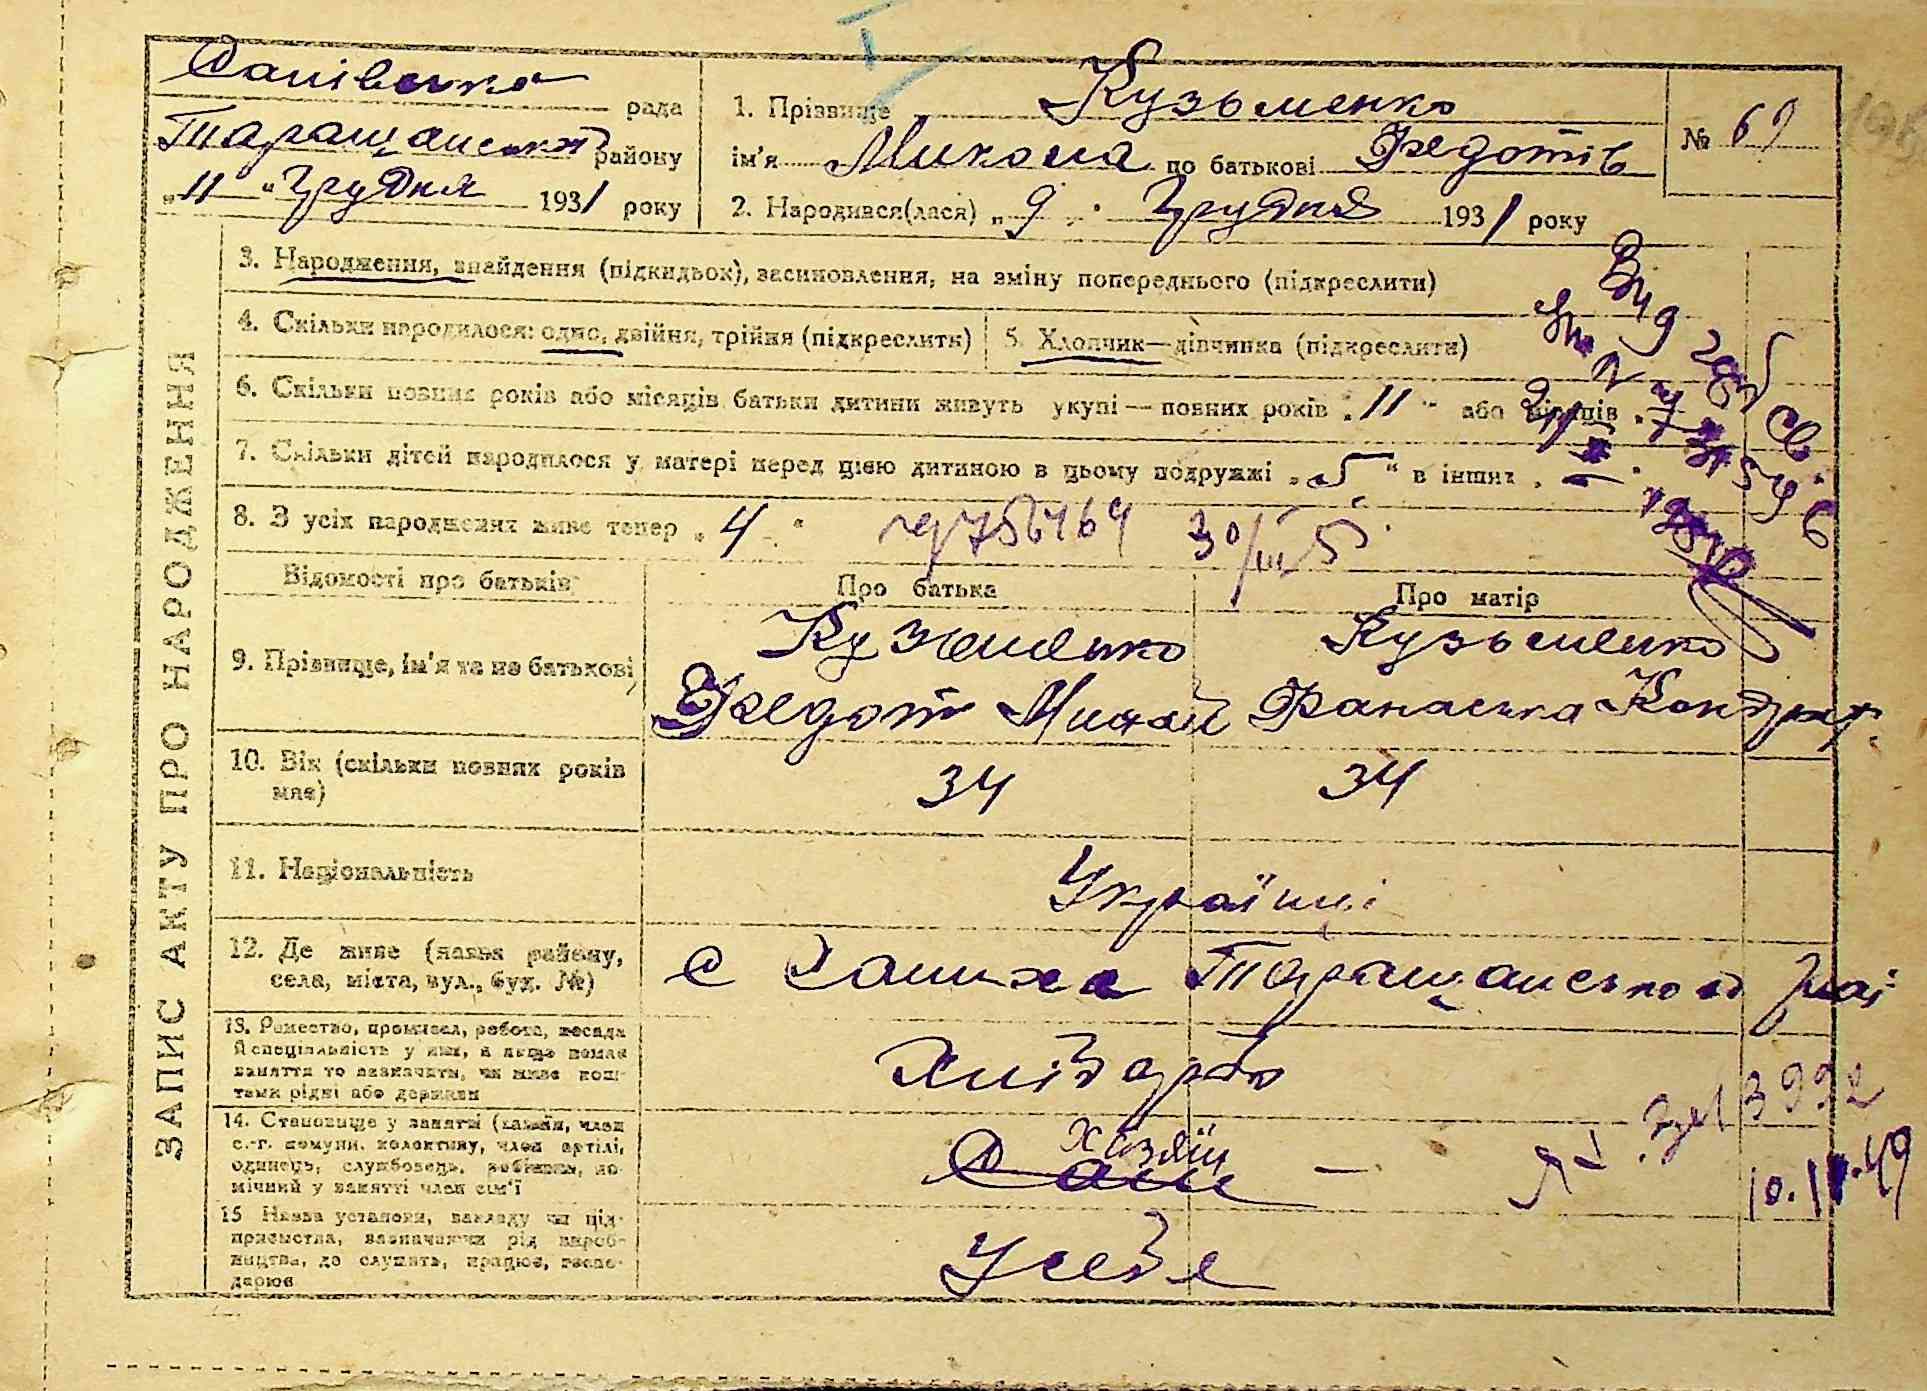 рада
Таращанський району
„11“ Грудня 1931 року
1. Прізвище Кузьменко
ім'я Микола по батькові Федотів
2. Народився(лася) „9“ Грудня 1931 року
№ 69
ЗАПИС АКТУ ПРО НАРОДЖЕННЯ
3. Народження, знайдення (підкидьок), засиновлення, на зміну попереднього (підкреслити)
4. Скільки народилося: одно, двійня, трійня (підкреслити)
5. Хлопчик—дівчинка (підкреслити)
6. Скільки повних років або місяців батьки дитини живуть укупі — повних років „11“ або місяців
7. Скільки дітей народилося у матері перед цією дитиною в цьому подружжі „5“ в інших „—“
8. З усіх народжених живе тепер „4“
30/III 5
Відомості про батьків
Про батька
Про матір
9. Прізвище, ім'я та по батькові
Кузьменко
Федот
Кузьменко
Фанаська Кондрат.
10. Вік (скільки повних років має)
34
34
11. Національність
Українці
12. Де живе (назва району,
села, міста, вул., буд. №)
с Салиха Таращанського рай
13. Ремество, промисел, робота, посада
й спеціяльність у них, а якщо немає
заняття то зазначити, чи живе кош-
тами рідні або держави
Хлібороб
14. Становище у занятті (хазяїн, член
с.-г. комуни, колективу, член артілі,
одинець, службовець, робітник, по-
мічний у занятті член сім'ї
Хазяїн
—
3992
10.II.49
15 Назва установи, закладу чи під-
приємства, зазначаючи рід вироб-
ництва, де служить, працює, госпо-
дарює
У себе